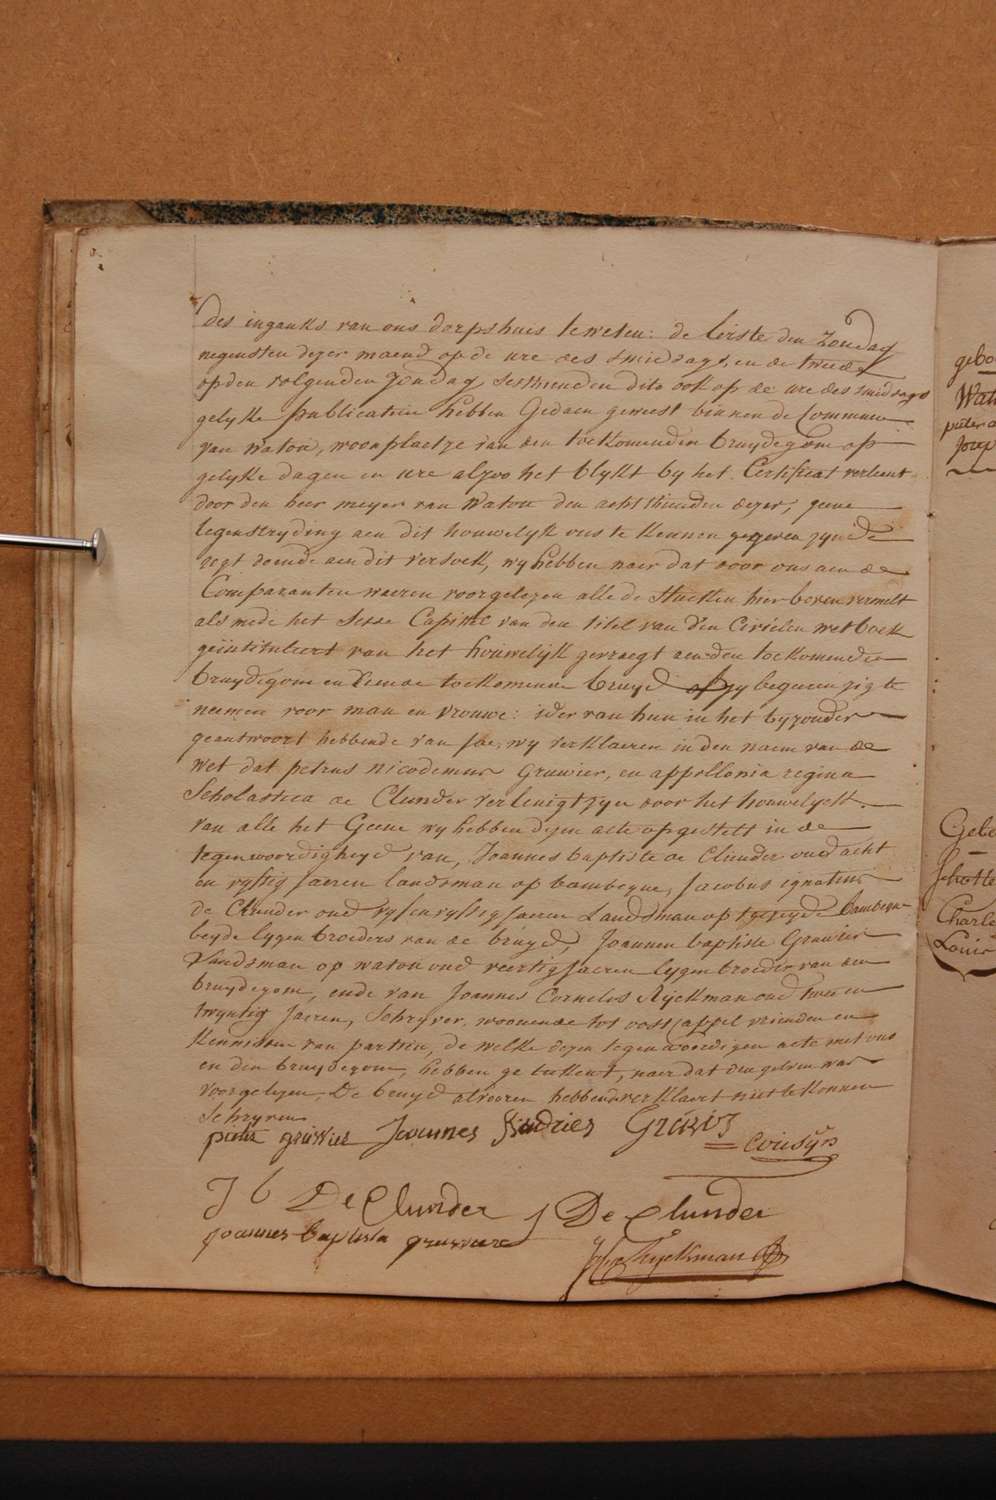 des inganks van ons dorpshuis te weten: de Eerste den Zondag
negensten dezer maend op de ure des smiddags, en de tweede
op den volgenden Zondag sesthienden dito ook op de ure des smiddags
gelyke publicatien hebben Gedaen geweest binnen de Commune
van watou, woonplaetze van den toekomenden bruydegom op
gelyke dagen en ure alzoo het blykt by het Certificat verleent
door den heer meyer van Watou den achtthienden dezer, geene
tegenstryding aen dit houwelyk ons te kennen gegeven zynde
regt doende aen dit versoek, wy hebben naer dat door ons aen de
Comparanten waeren voorgelezen alle de Stukken hier boven vermelt
als mede het Sesde Capittel van den titel van den Civielen wetboek
geïntituleert van het houwelyk gevraegt aen den toekomende
bruydegom en d'eende toekomende bruyd of zy begeeren zig te
neemen voor man en vrouwe: ider van hun in het byzonder
geantwoort hebbende van Jae, wy verklaeren in den naem van de
wet dat petrus nicodemus Gruwier, en appollonia regina
Scholastica de Clunder vereenigt zyn door het houwelyck.
van alle het Geene wy hebben dezen acte opgestelt in de
tegenwoordigheyd van, Joannes baptiste de Clunder oud acht
en vyftig Jaeren landsman op bambeque, Jacobus ignatius
de Clunder oud vyf en vyftig Jaeren Landsman op tgezeyde bambeque
beyde eygen broeders van de bruyd, Joannes baptiste Gruwier
Landsman op watou oud veertig Jaeren eygen broeder van den
bruydegom, ende van Joannes Cornelis Ryckman oud twee en
twyntig Jaeren, Schryver, woonende tot oostcappel vrienden en
kennissen van partien, de welke dezen tegenwoordigen acte met ons
en den bruydegom hebben geteekent, naer dat hun gelven was
voorgelezen. De bruyd alvooren hebbende verklaert niet te konnen
Schryven
pieter gruwier Joannes Gruwier
Cousyn
J b De Clunder J De Clunder
joannes baptista gruwier
J C Ryckman
gebo
Wat
pieter
Josep
Gele
Schotte
Charle
Louis